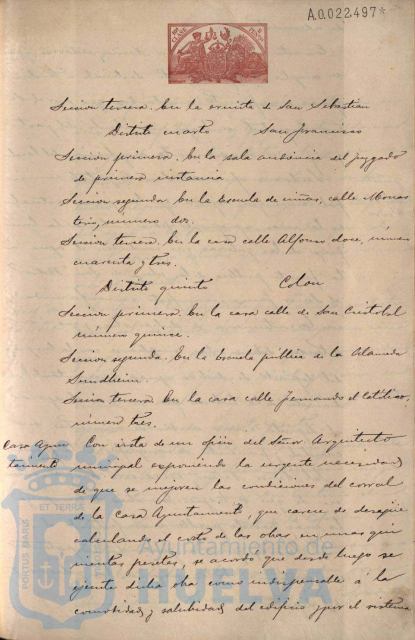 A.0.022.497*
Seccion tercera. En la ermita de San Sebastian
Distrito cuarto San Francisco
Seccion primera. En la sala audiencia del juzgado
de primera instancia
Seccion segunda. En la Escuela de niñas, calle Monas
terio, número dos.
Seccion tercera. En la casa calle Alfonso doce, número
cuarenta y tres.
Distrito quinto Colon
Seccion primera. En la casa calle de San Cristobal
número quince.
Seccion segunda. En la Escuela pública de la Alameda
Sundheim.
Seccion tercera. En la casa calle Fernando el Católico,
número tres.
Casa Ayun
tamiento
Con vista de un oficio del Señor Arquitecto
municipal exponiendo la urgente necesidad
de que se mejoren las condiciones del corral
de la Casa Ayuntamiento, que carece de desagüe
calculando el costo de las obras en unas qui
nientas pesetas, se acordó que desde luego se
ejecute dicha obra como indispensable á la
comodidad y salubridad del edificio y por el sistema
PORTUS MARIS ET TERRAE
Ayuntamiento de
HUELVA